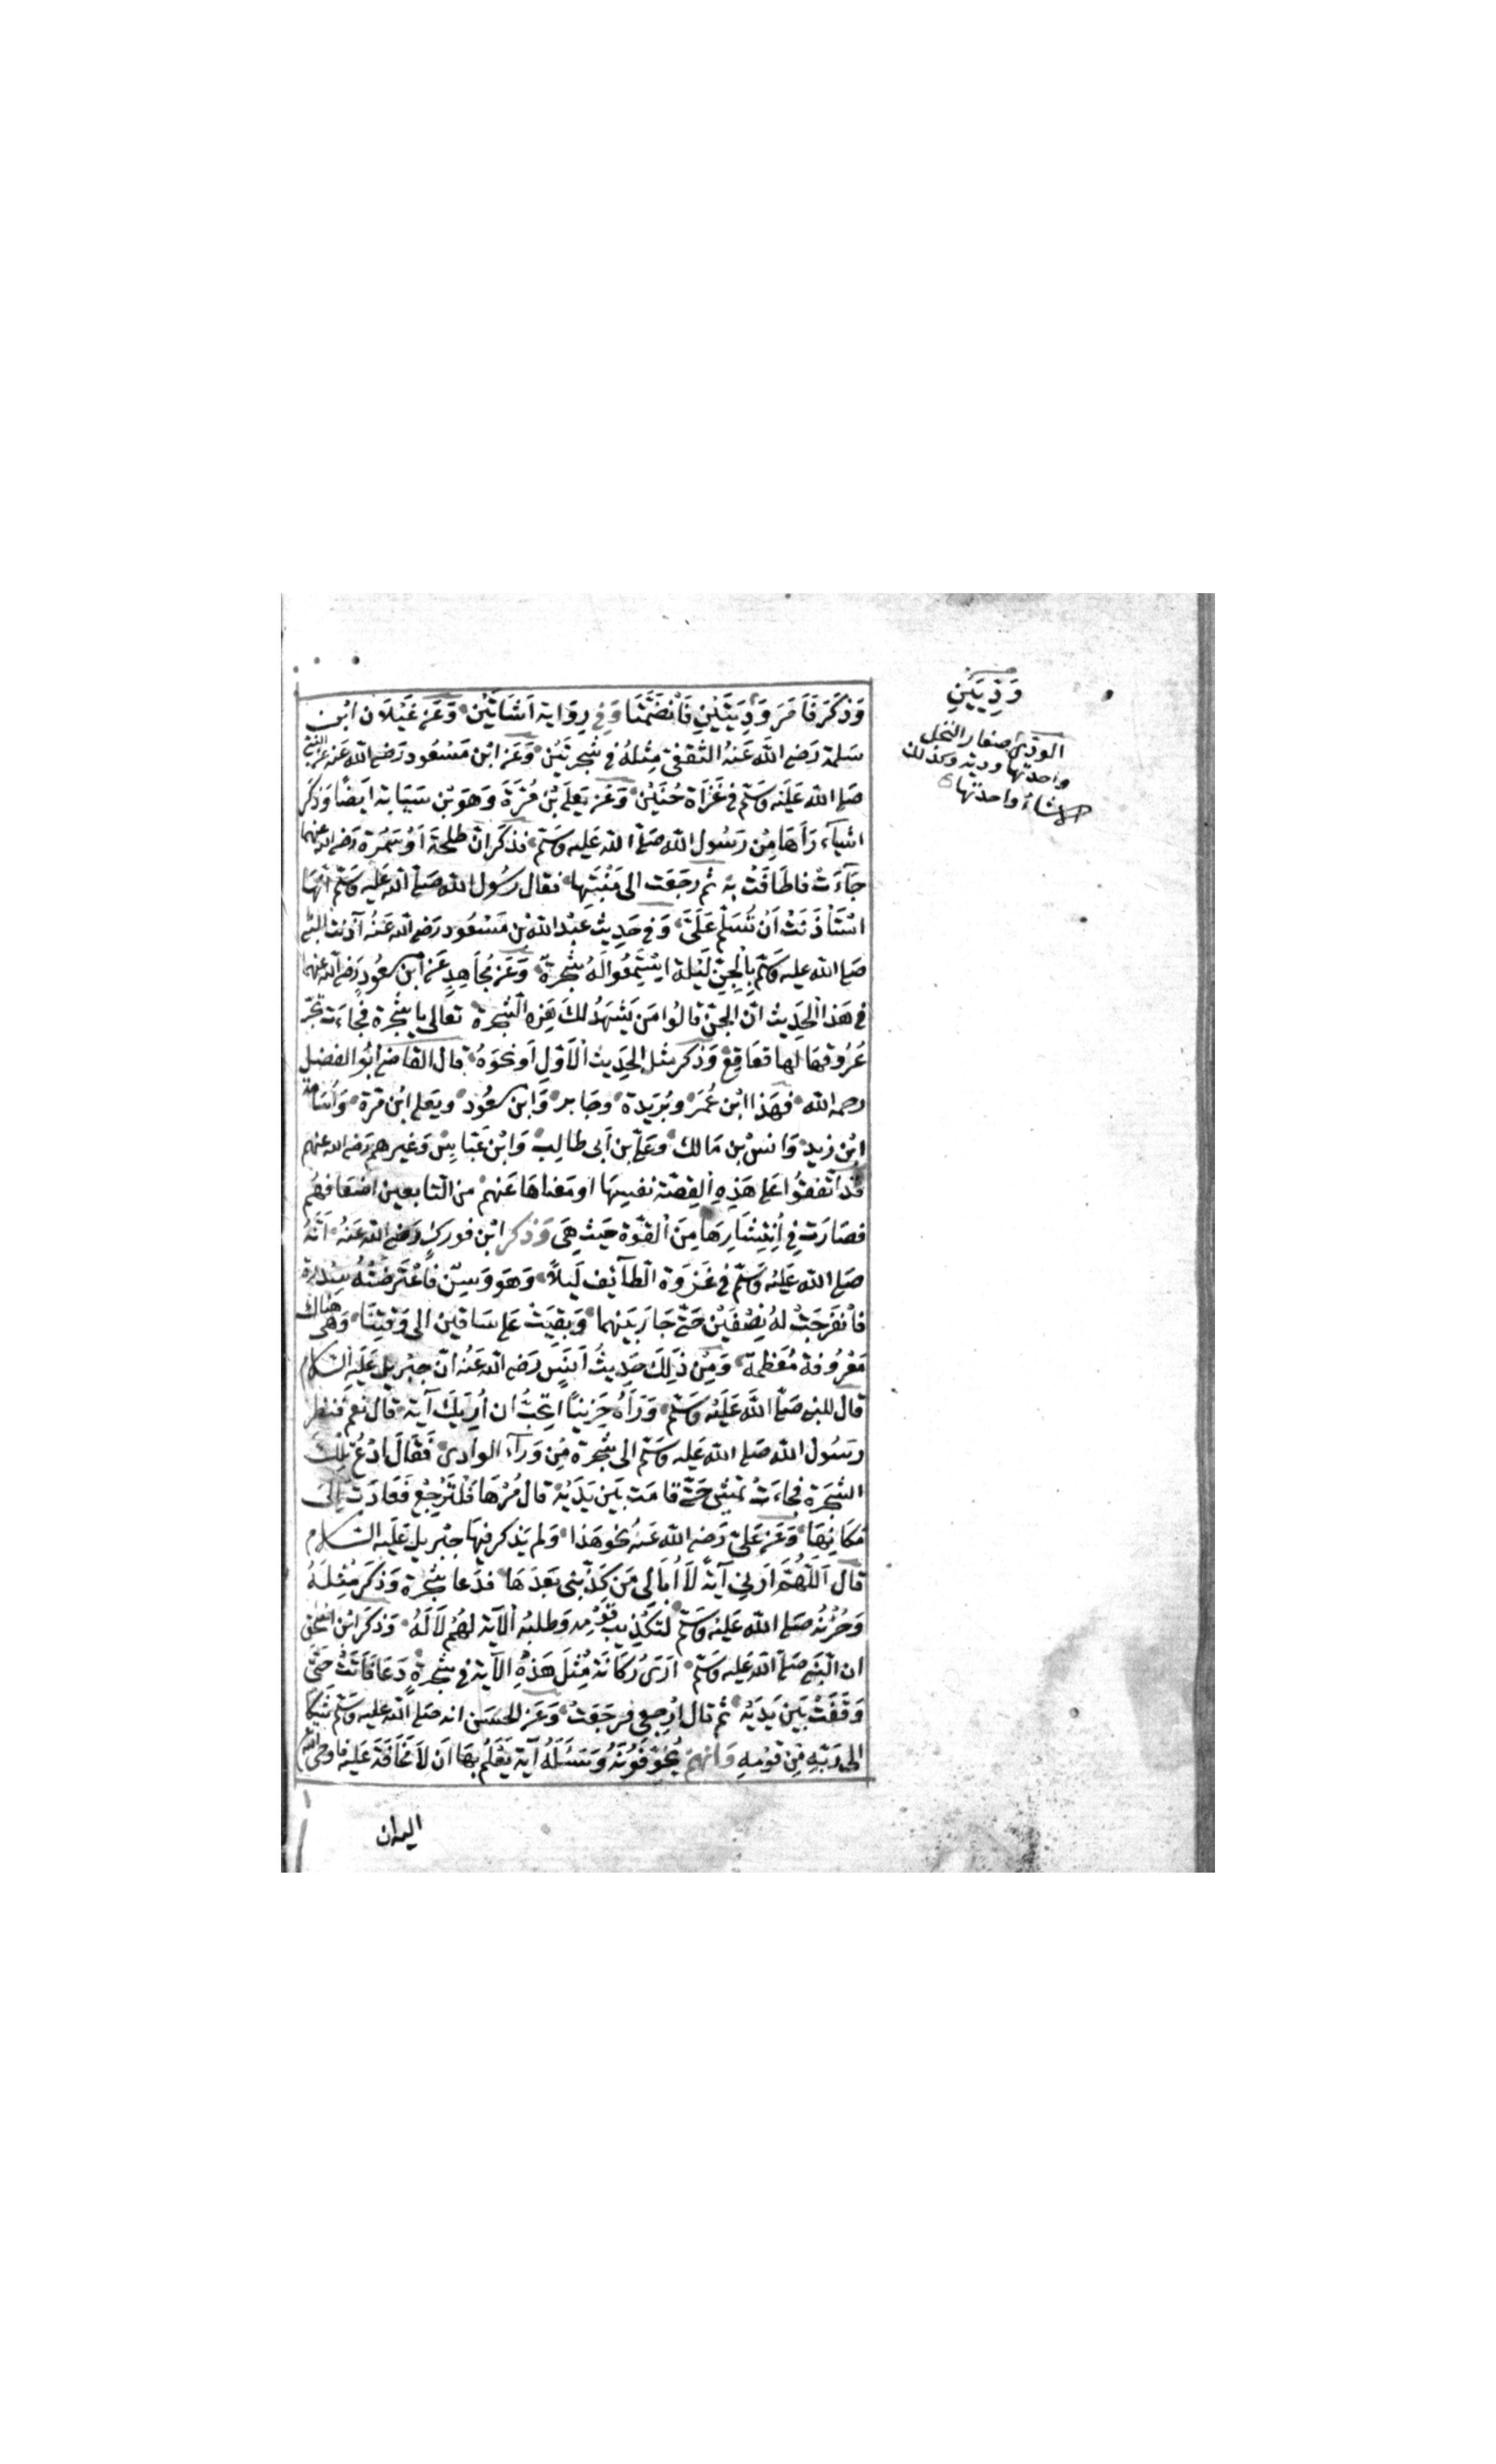 وَذَكَرَ فَأَمَرَ وَدِيَتَيْنِ فَانْضَمَّتَا وَفِي رِوَاية اَشَاتَيْنْ وَعَنْ غَيْلَان ابْن
سَلمة رَضي الله عَنهُ الثَّقفيّ مِثْلُهُ في شجرتَيْن وَعَن ابْن مَسْعُود رَضي الله عَنه عَن النبي
صَلى الله عَلَيْه وَسَلّم في غَزَاة حُنَيْن وَعَن يَعلى بْن مُرَّة وَهوَ بْن سَيَابة ايضًا وَذكَر
اشياءَ رَآهَا مِن رَسُول الله صَلّى الله عَليه وَسَلّم فذكَرَ انّ طلحة اَوْ سَمُرَة رَضي الله عنهما
جَآءَتْ فاطَافَتْ بهْ ثم رجَعَت الى مَنْبَتِهَا فقال رسُول الله صَلى الله عَليه وَسَلّم انّهَا
اسْتَأْذَنَتْ اَنْ تُسَلّم عَلَيَّ وَفي حَدِيث عَبْد الله بْن مَسْعُود رَضي الله عَنهُ آذنت النبي
صَلى الله عليه وَسَلّم بِالْجِنّ لَيْلة اسْتَمَعُوا لَهُ شجرَةٌ وَعَن مُجَاهِدٍ عَن ابْن مسعُودٍ رَضي الله عنهما
في هَذا الحَدِيث انّ الجنّ قالُوا مَن يَشْهَدُ لكَ هَذِه الشجرَة تعالى يا شجْرة فجاءَت تجرّ
عُرُوقهَا لها قعَاقِعْ وَذَكر مثْل الحَدِيث الاَوّلِ اَو نحوَهُ قال القاضي ابُو الفضل
رحمهُ الله فهَذا ابْن عُمَرَ وبُرَيدة وجَابر وَابن مسعُود ويَعلى ابْن مرة وَأُسَامة
ابْن زيد وَانسْ بن مَالك وَعَليّ بن اَبى طالبْ وَابْن عَبّاسٍ وَغيرهم رَضي الله عنهم
قد اتّفقُوا عَلى هَذِهِ القِصّة نفسِهَا او مَعْناهَا عَنهمْ من التابعين اضعَافهُم
فصَارَت في اِنتِشَارِهَا مِنَ القوّة حَيث هِيَ وَذكر ابْن فورَكٍ رَضي الله عَنهُ انّهُ
صَلى الله عَلَيْه وَسَلّم في غَزوَة الطآئف لَيلاً وَهوَ وَسِنٌ فاعْتَرضَتْهُ سِدْرَة
فانفَرَجَتْ لهُ نِصْفَيْن حَتّى جَازَ بَيْنهما وَبقِيَتْ عَلى سَاقين الى وَقتِنَا وَهى هناك
مَعْرُوفة مُعَظمة وَمِن ذَلِكَ حَدِيثُ اَنَسٍ رَضي الله عَنهُ انّ جبْريل عَلَيْه السَّلام
قال للنبي صَلى الله عَلَيْه وَسَلّم وَرَآهُ حَزِينًا اتحبُّ ان اُرِيَكَ آيَة قال نعم فنظر
رسُول الله صَلى الله عَليه وَسَلّم الى شجْرة مِن وَرَآءِ الوادى فَقَالَ ادْعُ تِلكَ
الشجَرَة فجاءَتْ تمشى حَتّى قامَت بَين يَدَيْهْ قال مُرْهَا فَلتَرْجِعْ فَعَادَتْ إلَى
مَكَانِهَا وَعَن عَليّ رَضي الله عَنهُ نحو هَذا وَلم يَذكر فيهَا جبْريل عَلَيْه السَّلام
قال اَللّهُمَّ اَرِنِي آيَةً لَا اُبَالى مَن كَذّبنى بَعْدَهَا فدَعَا شجْرَة وَذكَر مِثْلَهُ
وَحُزْنُهُ صَلى الله عَلَيْه وَسَلّم لتَكْذِيبِ قوْمه وَطلبُه الآيَة لهُمْ لَا لَهُ وَذكَرَ ابْن اسْحٰق
ان النّبي صَلّى الله عَليه وَسَلّم ارَى رُكَانَة مِثْلَ هَذِه الآيَة في شجَرةٍ دَعَا فَاَتَتْ حَتّى
وَقَفَتْ بَيْن يَدَيْه ثم قال ارْجِعي فرجَعَتْ وَعَن الحسَن انه صَلى الله عَليه وَسَلم شَكَا
الى رَبّهِ مِن قوْمهِ وَانّهمْ يُخوّفونَهُ وَسَئَلَهُ آيَة يَعْلمُ بهَا اَن لاَ مَخَافَة عَليه فاوحى الله
اليه ان
وَدِيَتَيْنِ
الودي صغار النخل
واحدتها ودية وكذلك
الاشاءُ واحدتها